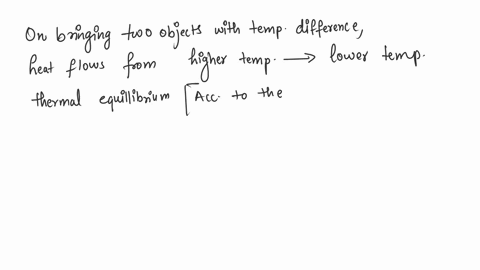 On bringing two objects with temp. difference,
heat flows from higher temp. → lower temp.
thermal equillibrium [Acc. to the